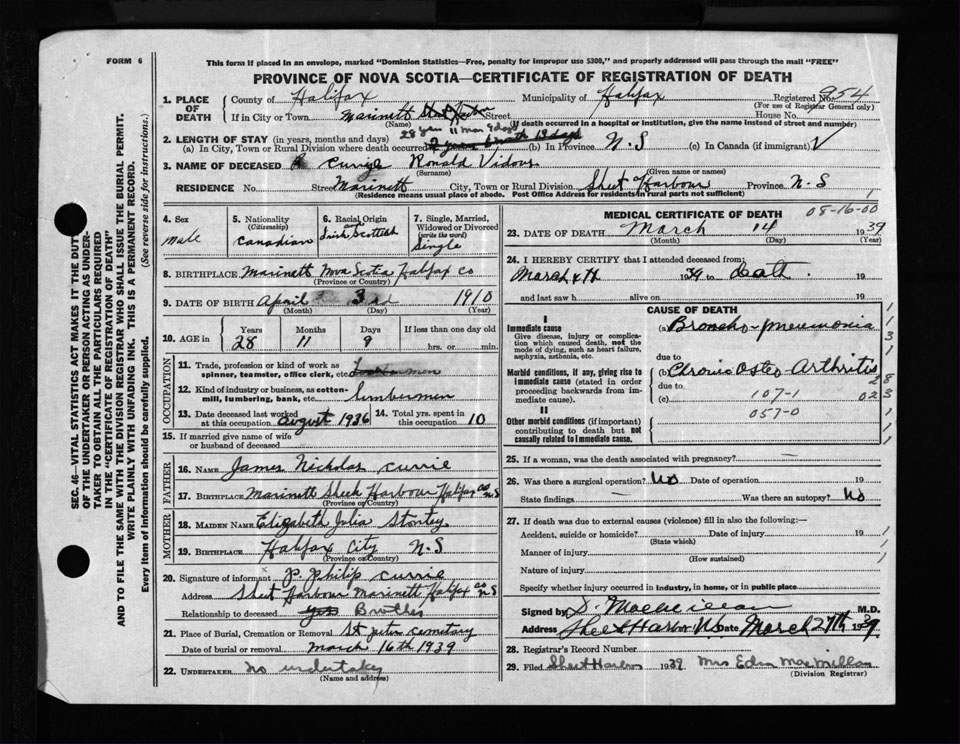 FORM 6
This form if placed in an envelope, marked "Dominion Statistics—Free, penalty for improper use $300," and properly addressed will pass through the mail "FREE"
PROVINCE OF NOVA SCOTIA—CERTIFICATE OF REGISTRATION OF DEATH
SEC. 46—VITAL STATISTICS ACT MAKES IT THE DUTY
OF THE UNDERTAKER OR PERSON ACTING AS UNDER-
TAKER TO OBTAIN ALL THE PARTICULARS REQUIRED
IN THE "CERTIFICATE OF REGISTRATION OF DEATH"
AND TO FILE THE SAME WITH THE DIVISION REGISTRAR WHO SHALL ISSUE THE BURIAL PERMIT.
WRITE PLAINLY WITH UNFADING INK. THIS IS A PERMANENT RECORD.
Every Item of Information should be carefully supplied. (See reverse side for instructions.)
1. PLACE OF DEATH
County of Halifax Municipality of Halifax Registered No. 954
(For use of Registrar General only)
If in City or Town Marinett Street House No.
(Name) (If death occurred in a hospital or institution, give the name instead of street and number)
28 yrs 11 mon 9 days
2. LENGTH OF STAY (in years, months and days)
(a) In City, Town or Rural Division where death occurred (b) In Province N.S (c) In Canada (if immigrant) √
3. NAME OF DECEASED Currie Ronald
(Surname) (Given name or names)
RESIDENCE No. Street Marinett City, Town or Rural Division Sheet Harbour Province N.S
(Residence means usual place of abode. Post Office Address for residents in rural parts not sufficient)
4. Sex
male
5. Nationality
(Citizenship)
Canadian
6. Racial Origin
Irish Scottish
7. Single, Married,
Widowed or Divorced
(write the word)
Single
8. BIRTHPLACE Marinett Nova Scotia Halifax Co
(Province or Country)
9. DATE OF BIRTH April 3rd 1910
(Month) (Day) (Year)
10. AGE in
Years Months Days If less than one day
28 11 9 hrs. or min.
OCCUPATION
11. Trade, profession or kind of work as
spinner, teamster, office clerk, etc.
12. Kind of industry or business, as cotton-
mill, lumbering, bank, etc. Lumbermen
13. Date deceased last worked
at this occupation August 1936
14. Total yrs. spent in
this occupation 10
15. If married give name of wife
or husband of deceased
FATHER
16. NAME James Nicholas Currie
17. BIRTHPLACE Marinett Sheet Harbour Halifax Co N S
(Province or Country)
MOTHER
18. MAIDEN NAME Elizabeth Julia
19. BIRTHPLACE Halifax City N.S
(Province or Country)
20. Signature of informant P. Philip Currie
Address Sheet Harbour Marinett Halifax Co N S
Relationship to deceased Brother
21. Place of Burial, Cremation or Removal St Peter Cemetary
Date of burial or removal March 16th 1939
22. UNDERTAKER No undertaker
(Name and address)
MEDICAL CERTIFICATE OF DEATH 08-16-00
23. DATE OF DEATH March 14 1939
(Month) (Day)
24. I HEREBY CERTIFY that I attended deceased from:
March 1939 to death 19
and last saw h alive on 19
CAUSE OF DEATH
I
Immediate cause
Give disease, injury or complica-
tion which caused death, not the
mode of dying, such as heart failure,
asphyxia, asthenia, etc.
(a) Broncho-pneumonia
due to
Morbid conditions, if any, giving rise to
immediate cause (stated in order
proceeding backwards from im-
mediate cause).
(b) Osteo-Arthritis
due to
(c) 107-1
057-0
II
Other morbid conditions (if important)
contributing to death but not
causally related to immediate cause.
25. If a woman, was the death associated with pregnancy? —
26. Was there a surgical operation? No Date of operation 19
State findings — Was there an autopsy? No
27. If death was due to external causes (violence) fill in also the following:—
Accident, suicide or homicide? Date of injury 19
(State which)
Manner of injury
(How sustained)
Nature of injury
Specify whether injury occurred in industry, in home, or in public place
Signed by M.D.
Address Sheet Harbor NS Date March 27th 1939
28. Registrar's Record Number
29. Filed Sheet Harbor 1939 Mrs Edna MacMillan
(Division Registrar)